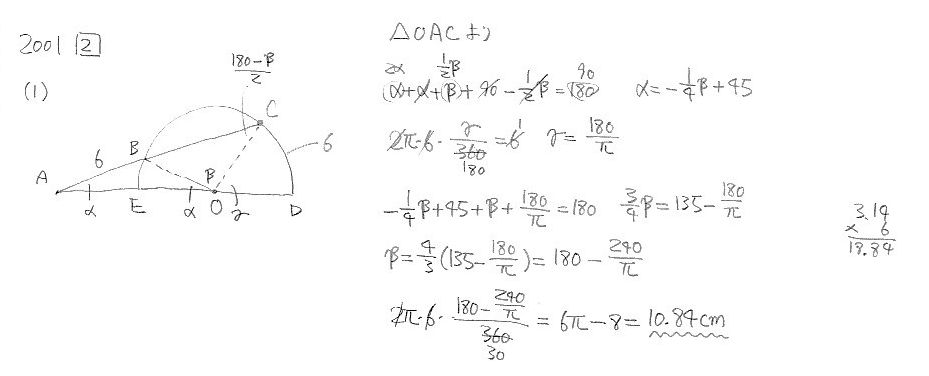 2001 [2]
(1)
(180-β)/2
C
6
B
6
β
A
α E α O γ D
△OACより
2α 1/2β 90
(α+α+β)+90-1/2β=180 α=-1/4β+45
2π·6·γ/360=6 1 γ=180/π
180
-1/4β+45+β+180/π=180 3/4β=135-180/π
β=4/3(135-180/π)=180-240/π
2π·6·(180-240/π)/360=6π-8=10.84cm
30
3.14
× 6
18.84